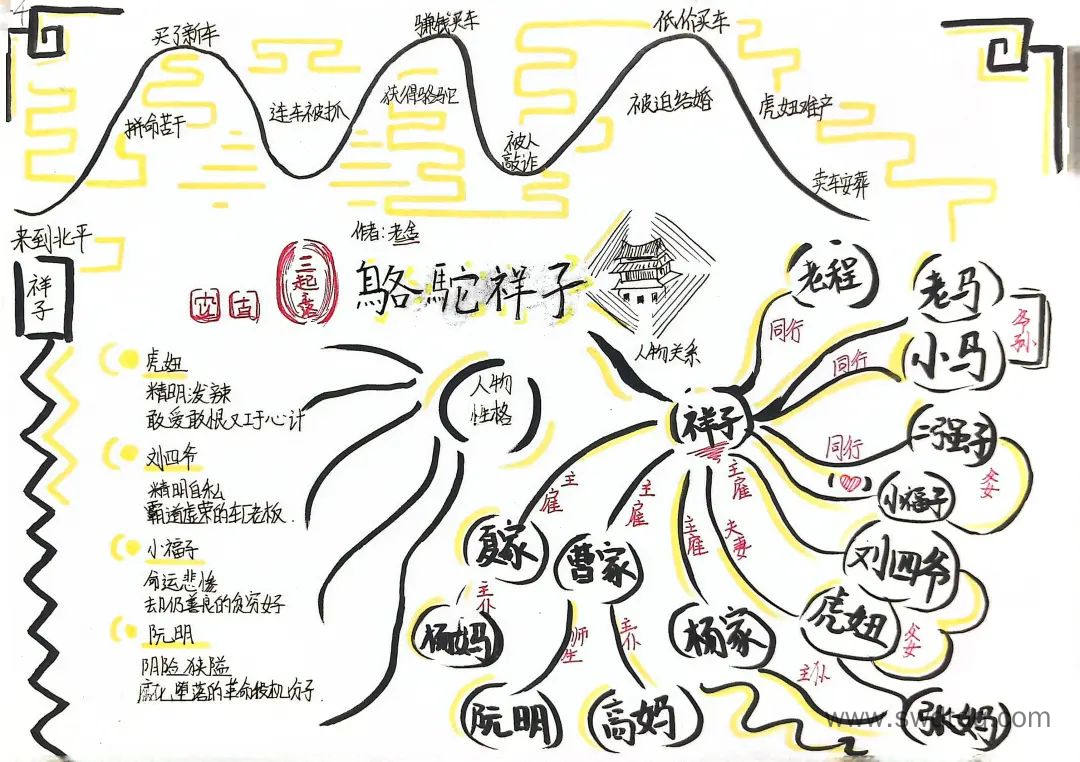 买了新车
赚钱买车
低价买车
拼命苦干
连车被抓
获得骆驼
被人
敲诈
被迫结婚
虎妞难产
卖车安葬
来到北平
祥子
作者:老舍
三起
骆驼祥子
人物关系
人物
性格
虎妞
精明泼辣
敢爱敢恨又工于心计
刘四爷
精明自私
霸道虚荣的车厂老板.
小福子
命运悲惨
却仍善良的贫穷好
阮明
阴险狭隘
腐化堕落的革命投机分子.
祥子
老程
同行
老马
小马
同行
爷孙
二强子
同行
小福子
父女
刘四爷
主雇
虎妞
夫妻
父女
杨家
主雇
张妈
主仆
曹家
主雇
阮明
师生
高妈
主仆
夏家
主雇
杨妈
主仆